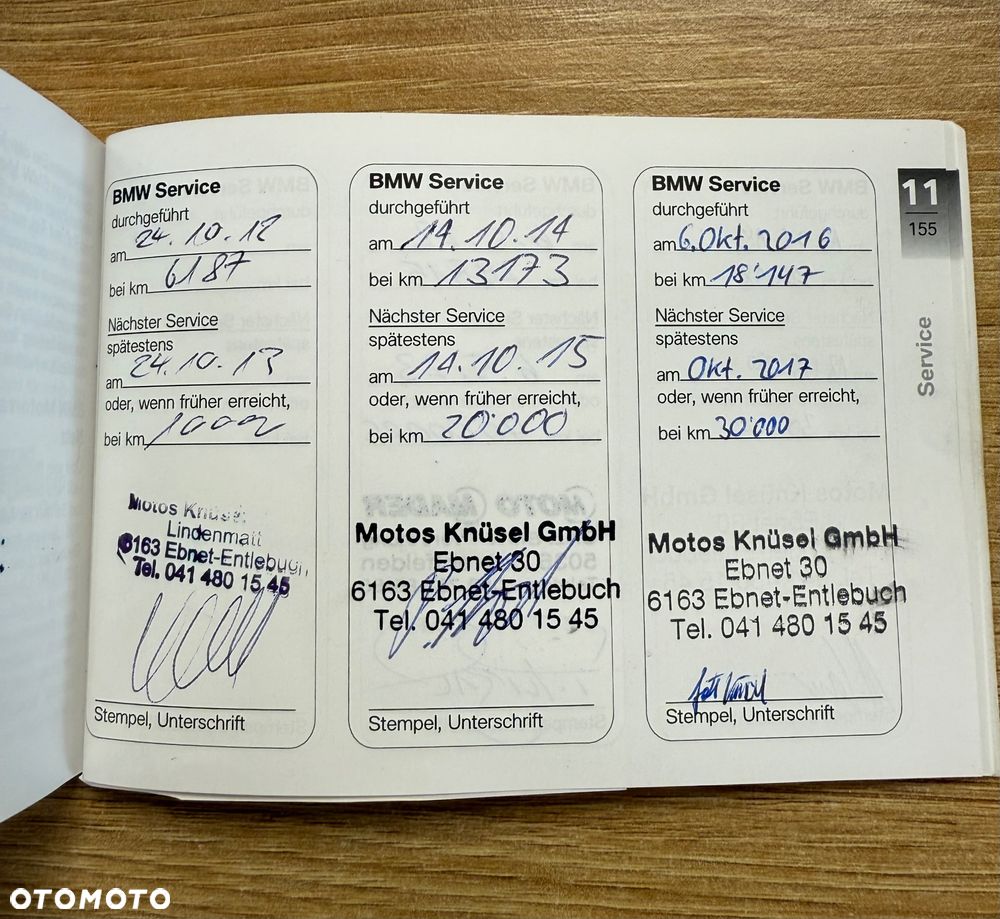 BMW Service
durchgeführt
am 24.10.12
bei km 6187
Nächster Service
spätestens
am 24.10.13
oder, wenn früher erreicht,
bei km
Motos Knüsel
Lindenmatt
6163 Ebnet-Entlebuch
Tel. 041 480 15 45
Stempel, Unterschrift
BMW Service
durchgeführt
am 14.10.14
bei km 13173
Nächster Service
spätestens
am 14.10.15
oder, wenn früher erreicht,
bei km 20'000
Motos Knüsel GmbH
Ebnet 30
6163 Ebnet-Entlebuch
Tel. 041 480 15 45
Stempel, Unterschrift
BMW Service
durchgeführt
am 6. Okt. 2016
bei km 18'147
Nächster Service
spätestens
am Okt. 2017
oder, wenn früher erreicht,
bei km 30'000
Motos Knüsel GmbH
Ebnet 30
6163 Ebnet-Entlebuch
Tel. 041 480 15 45
Stempel, Unterschrift
11
155
Service
OTOMOTO